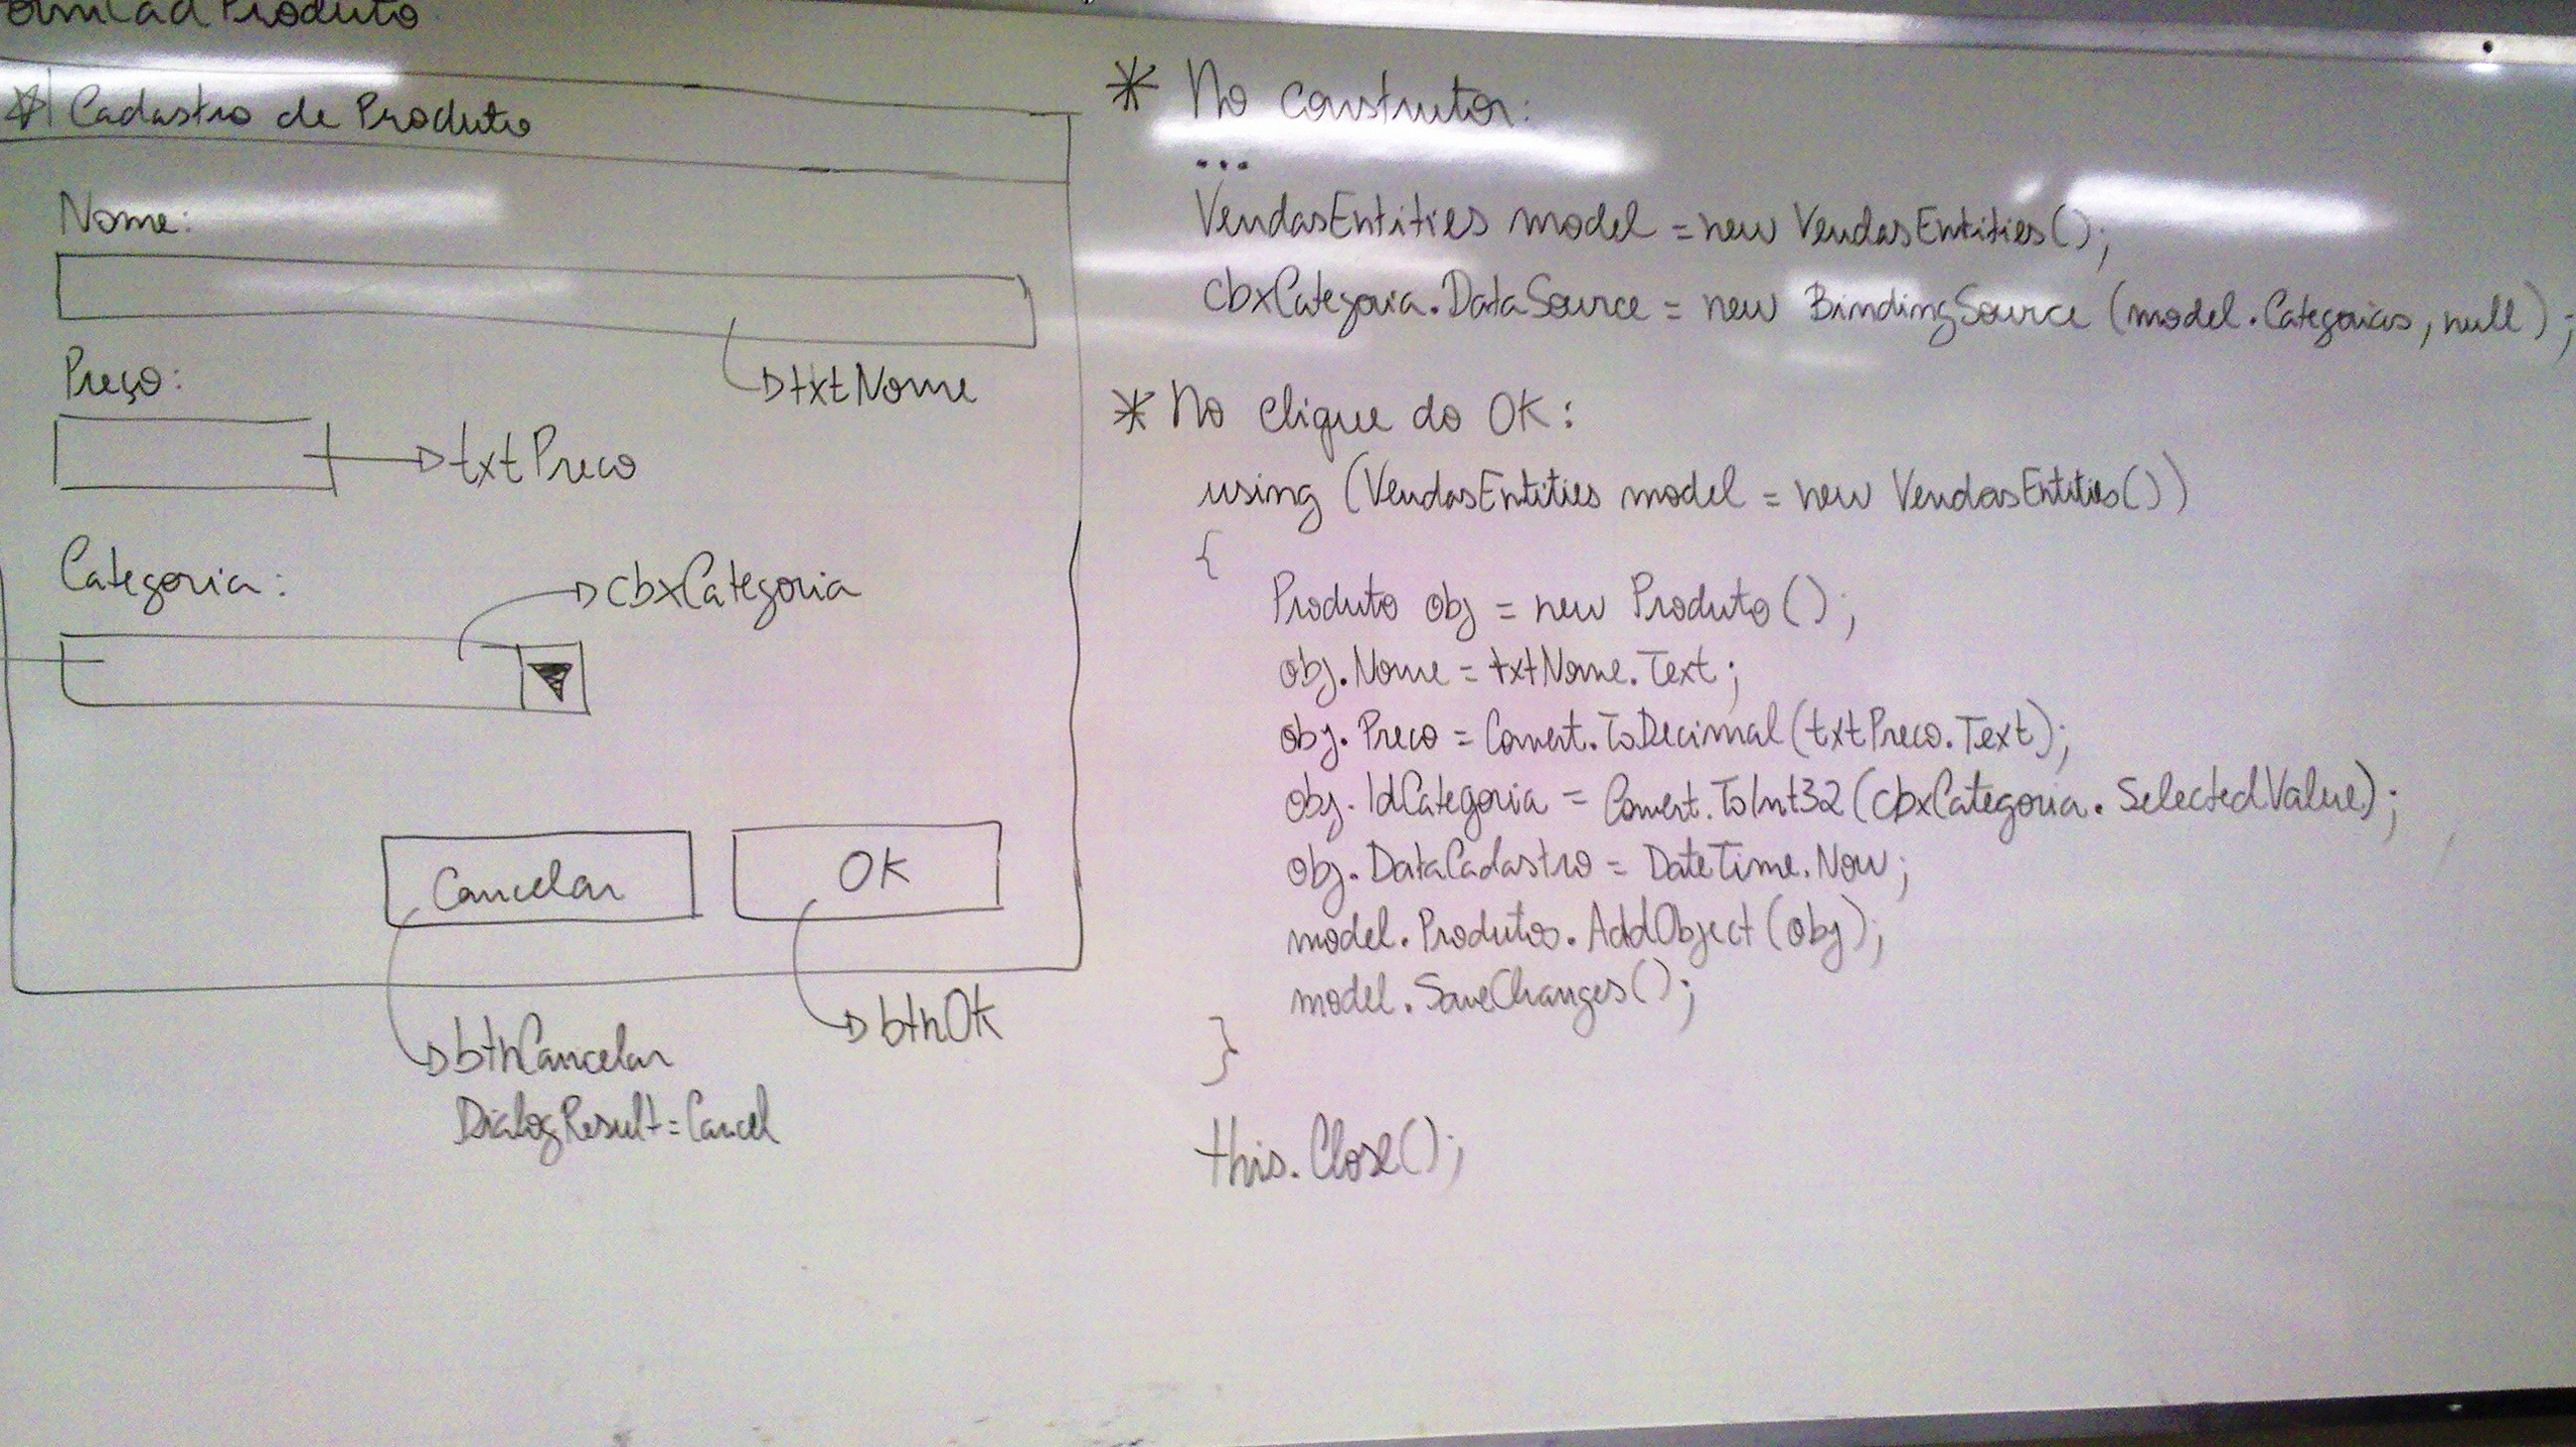 Produto
Cadastro de Produto
Nome:
txtNome
Preço:
txtPreco
Categoria:
cbxCategoria
Cancelar
OK
btnCancelar
DialogResult=Cancel
btnOK
* No construtor:
...
VendasEntities model = new VendasEntities();
cbxCategoria.DataSource = new BindingSource (model.Categorias, null);
* No clique do OK:
using (VendasEntities model = new VendasEntities())
{
Produto obj = new Produto();
obj.Nome = txtNome.Text;
obj.Preco = Convert.ToDecimal(txtPreco.Text);
obj.IdCategoria = Convert.ToInt32(cbxCategoria.SelectedValue);
obj.DataCadastro = DateTime.Now;
model.Produtos.AddObject(obj);
model.SaveChanges();
}
this.Close();